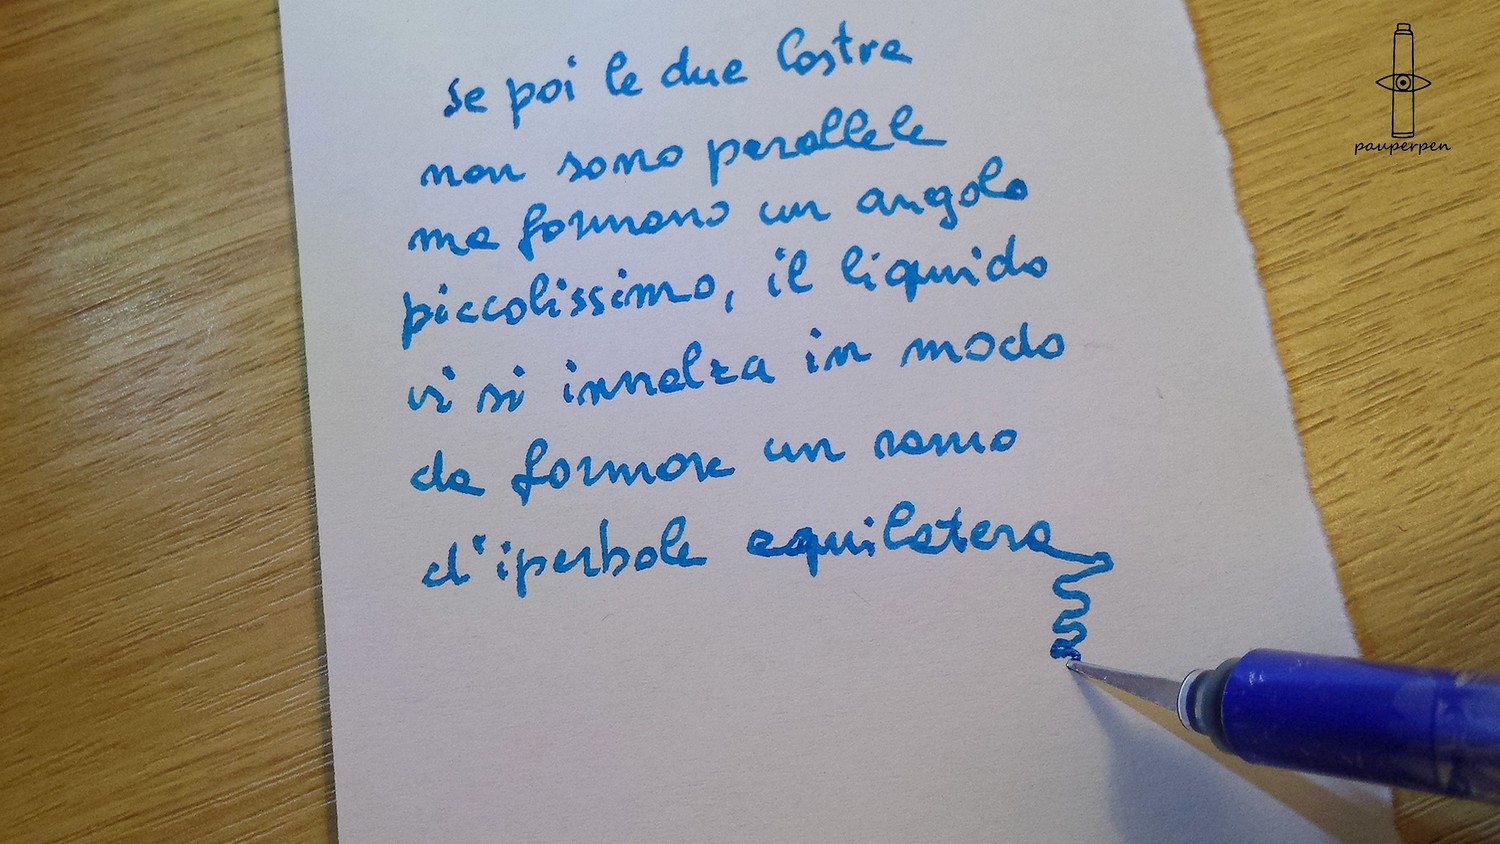 se poi le due lastre
non sono parallele
ma formano un angolo
piccolissimo, il liquido
vi si innalza in modo
da formare un ramo
d'iperbole equilatera
pauperpen